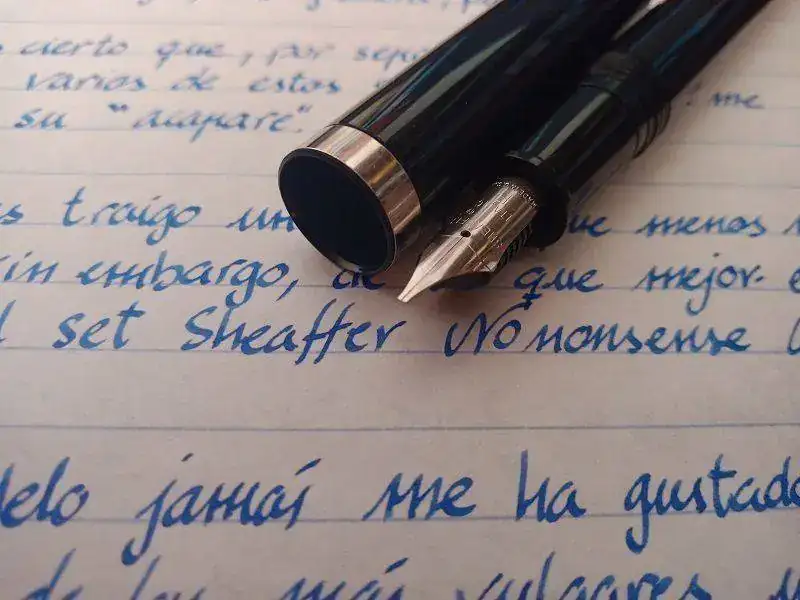 cierto que, por sepa
varios de estos
su "acapare". me
traigo un que menos
Sin embargo, de que mejor
set Sheaffer No nonsense
delo jamás me ha gustado
de los más vulgares